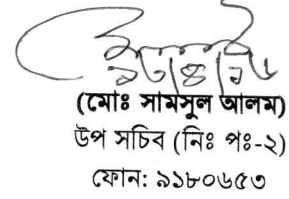 (মোঃ সামসুল আলম)
উপ সচিব (নিঃ পঃ-২)
ফোন: ৯১৮০৬৫৩